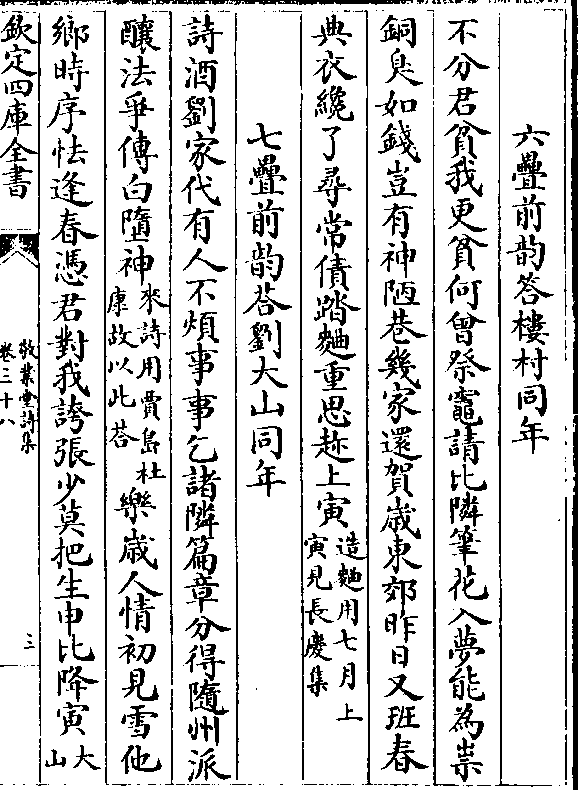 六疊前韵答樓村同年
不分君貧我更貧何曾祭竈請比隣筆花入夢能為祟
銅臭如錢豈有神陋巷幾家還賀歲東郊昨日又班春
典衣纔了尋常債踏麯重思趂上寅造麯用七月上寅見長慶集
七疊前韵荅劉大山同年
詩酒劉家代有人不煩事事乞諸隣篇章分得隨州派
釀法爭傳白墮神來詩用賈島杜康故以此荅樂歲人情初見雪他
鄉時序怯逢春憑君對我誇張少莫把生申比降寅大山
欽定四庫全書
敬業堂詩集
卷三十八
三